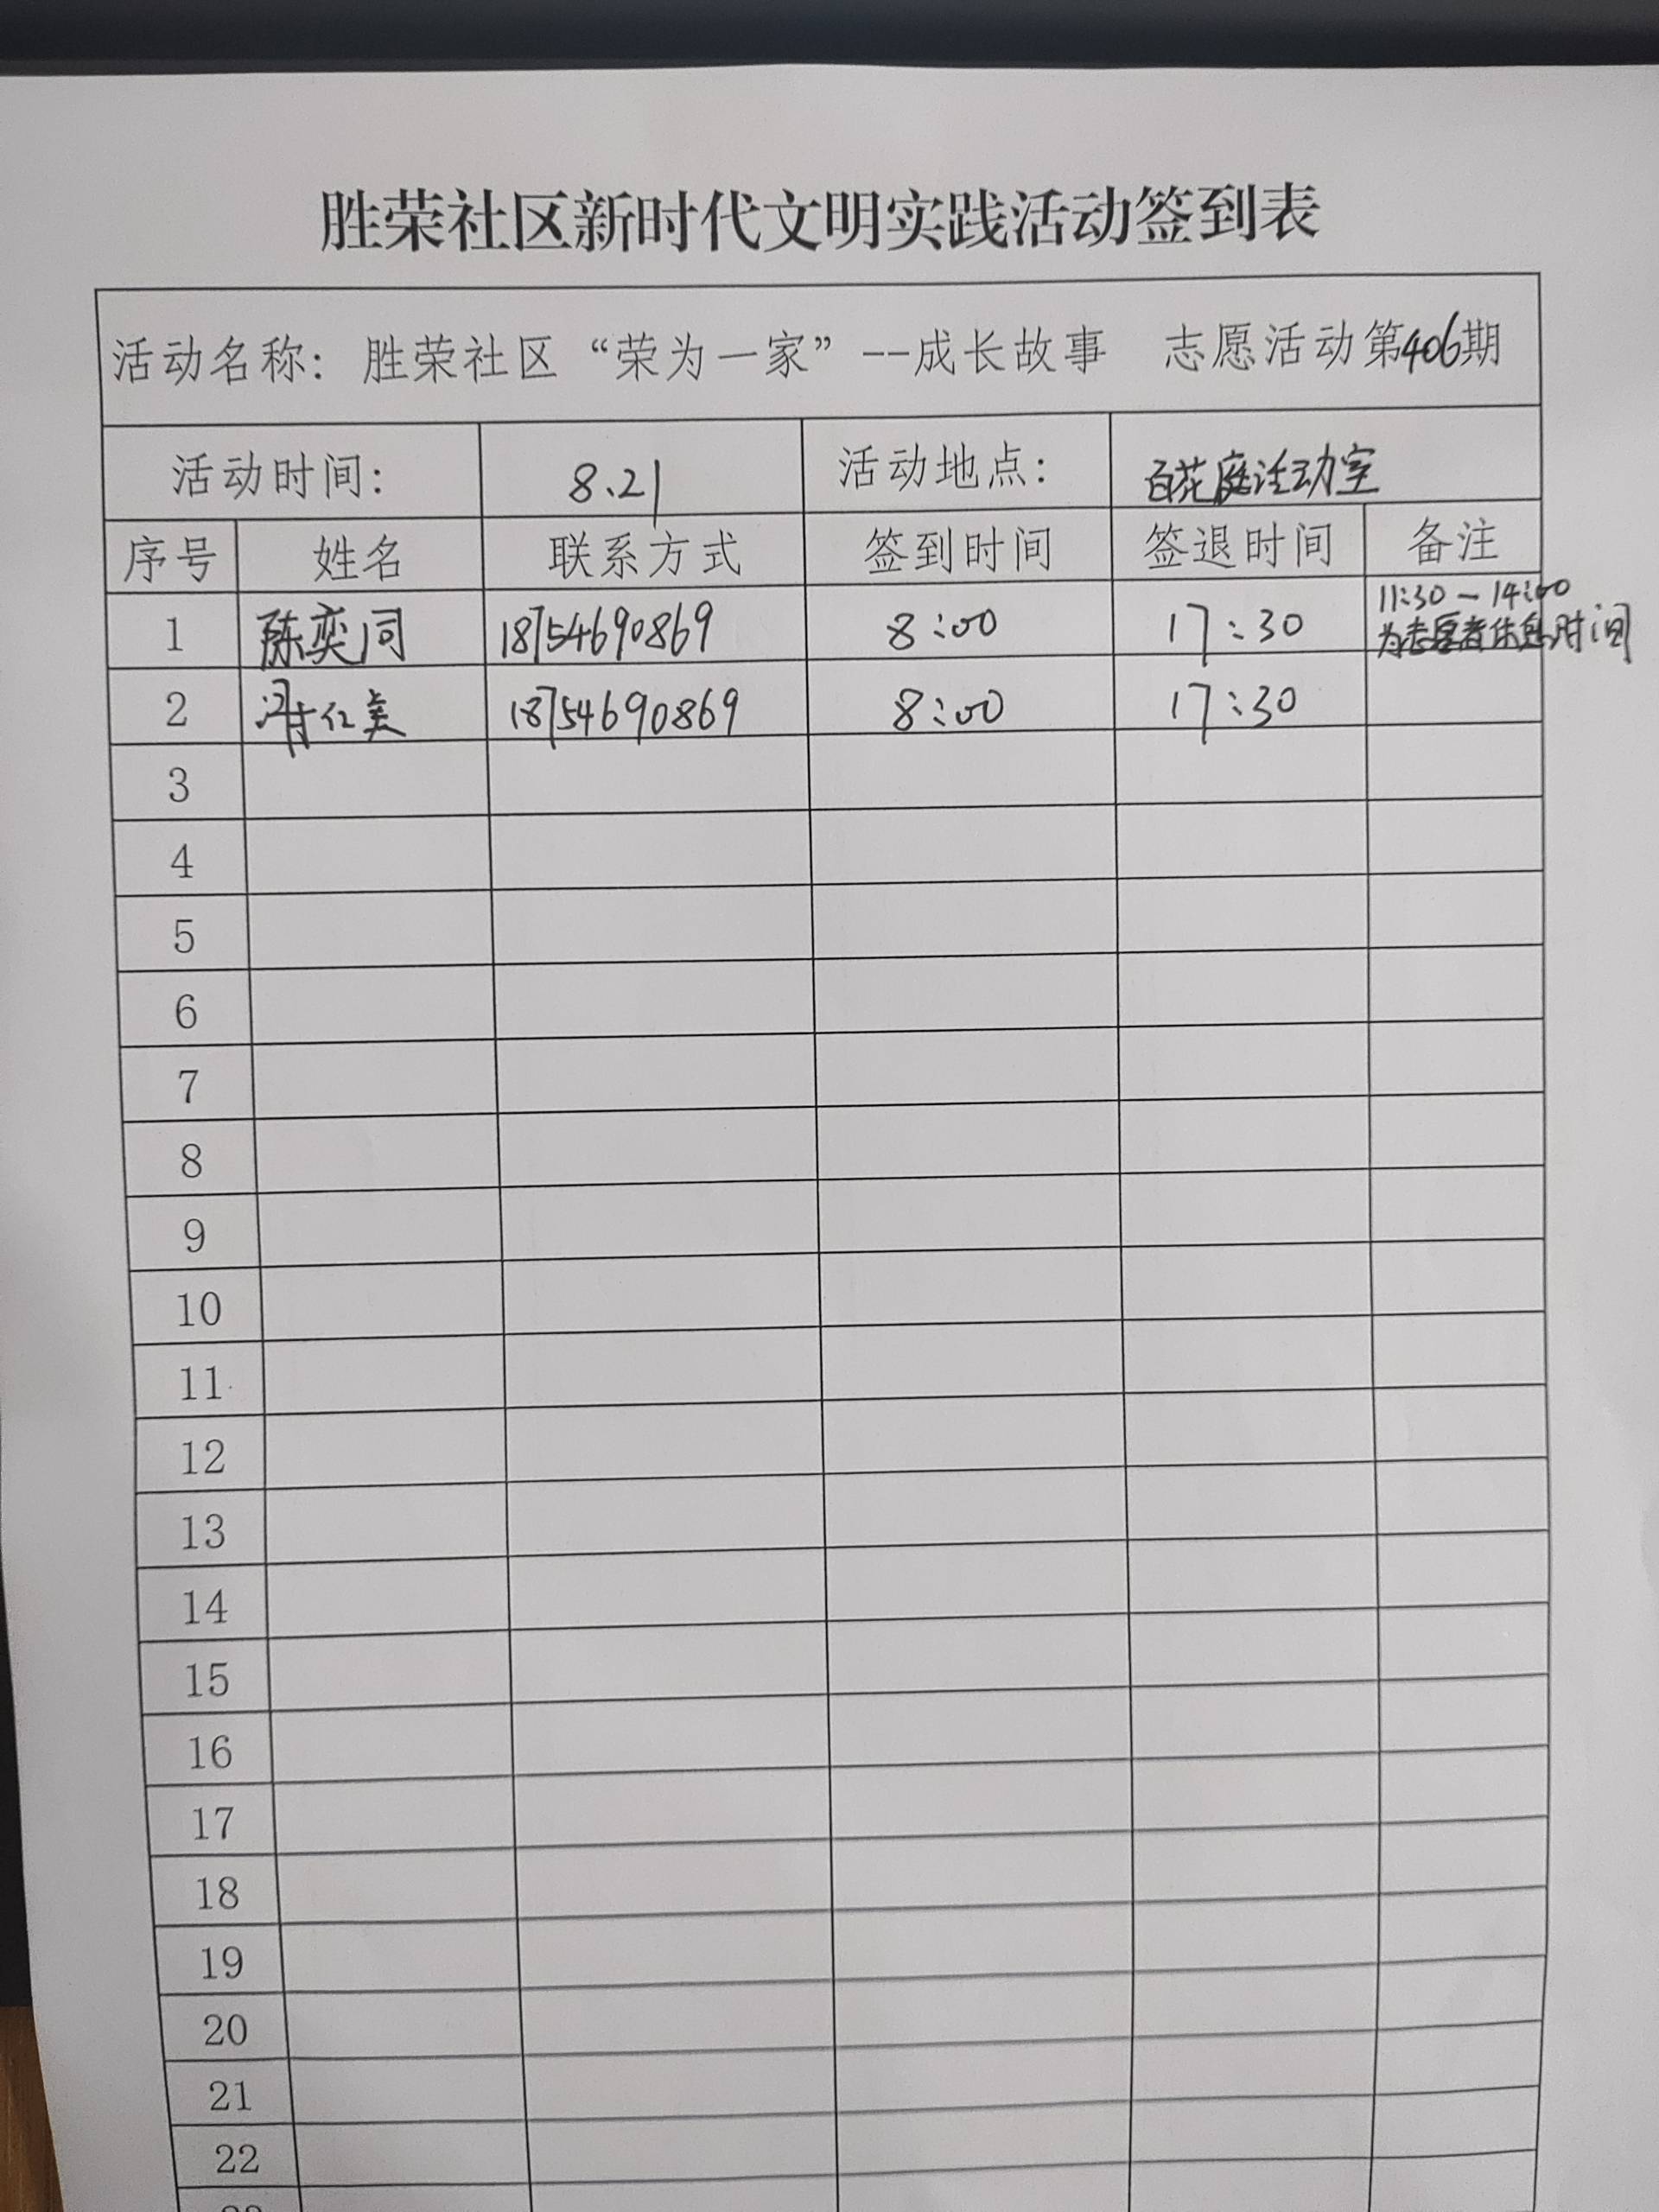 胜荣社区新时代文明实践活动签到表
活动名称：胜荣社区“荣为一家”--成长故事 志愿活动第406期
活动时间： 8.21 活动地点： 百花庭活动室
序号 姓名 联系方式 签到时间 签退时间 备注
1 陈奕同 18754690869 8:00 17:30 11:30-14:00
为志愿者休息时间
2 18754690869 8:00 17:30
3
4
5
6
7
8
9
10
11
12
13
14
15
16
17
18
19
20
21
22